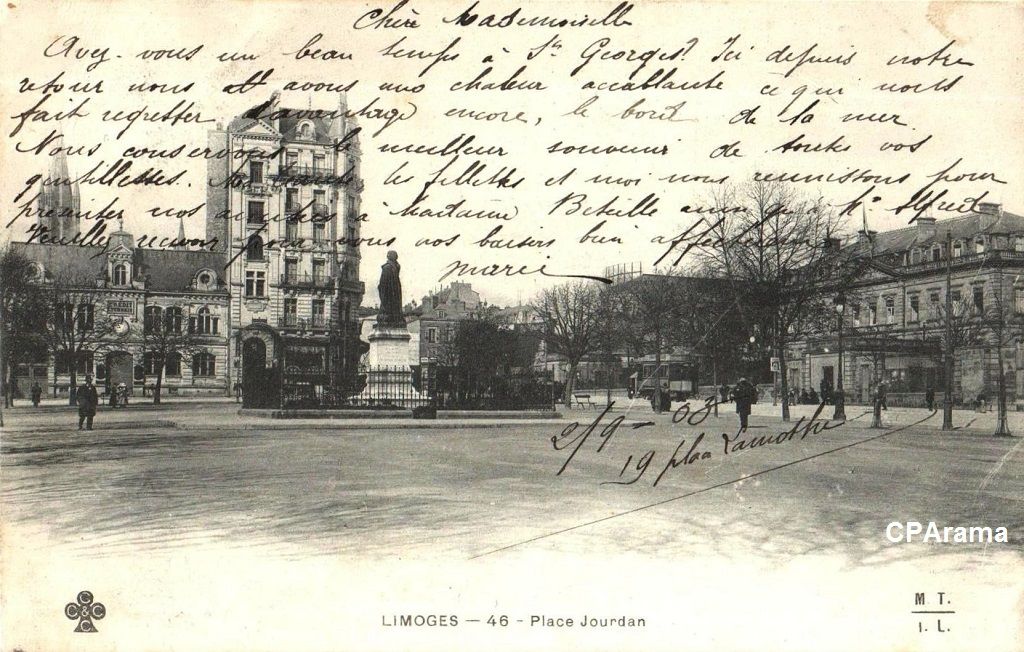 Chère Mademoiselle
Avez-vous un beau temps à St Georges? Ici depuis notre
retour nous avons une chaleur accablante ce qui nous
fait regretter davantage encore, le bord de la mer.
Nous conservons le meilleur souvenir de toutes vos
gentillesses. les fillettes et moi nous réunissons pour
présenter nos amitiés à Madame Béteille ainsi qu'à Mr Alfred
Veuillez recevoir pour vous nos baisers bien affectueux
Marie
2/9-03
19 place Lamothe
CPArama
C C C C
LIMOGES — 46 - Place Jourdan
M T.
I. L.